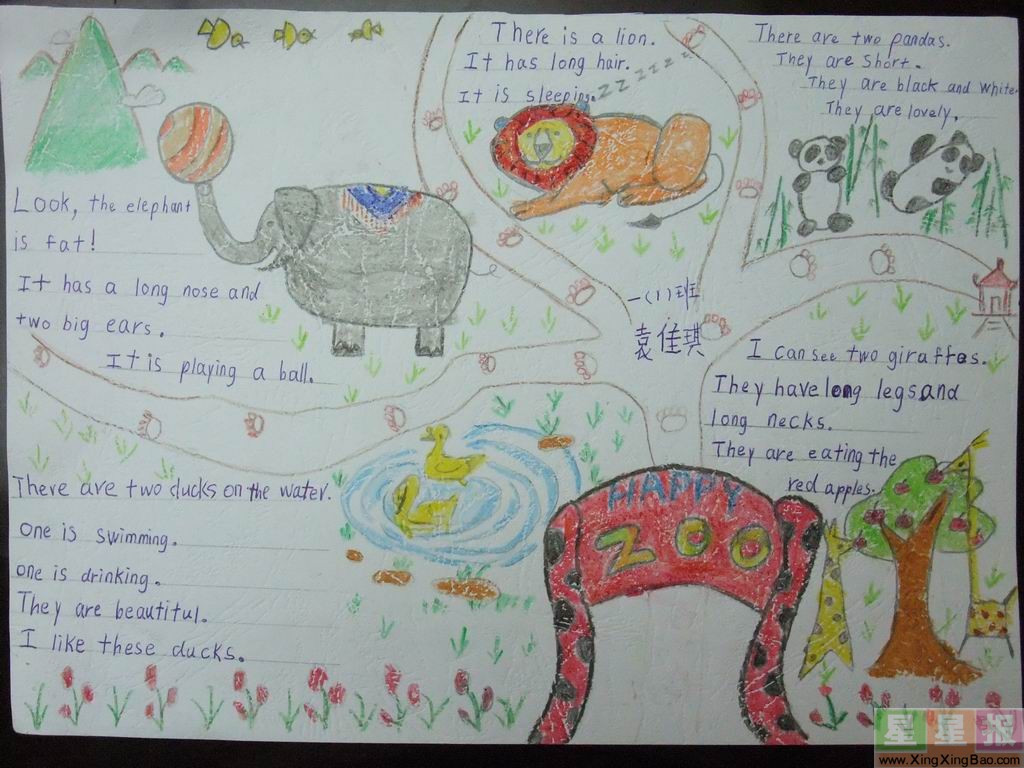 There is a lion.
It has long hair.
It is sleeping.zzzzzz
There are two pandas.
They are short.
They are black and white.
They are lovely.
Look, the elephant
is fat!
It has a long nose and
two big ears.
It is playing a ball.
一(1)班
袁佳琪
I can see two giraffes.
They have long legs and
long necks.
They are eating the
red apples.
There are two ducks on the water.
one is swimming.
one is drinking.
They are beautiful.
I like these ducks.
HAPPY
ZOO
星星报
www.XingXingBao.com